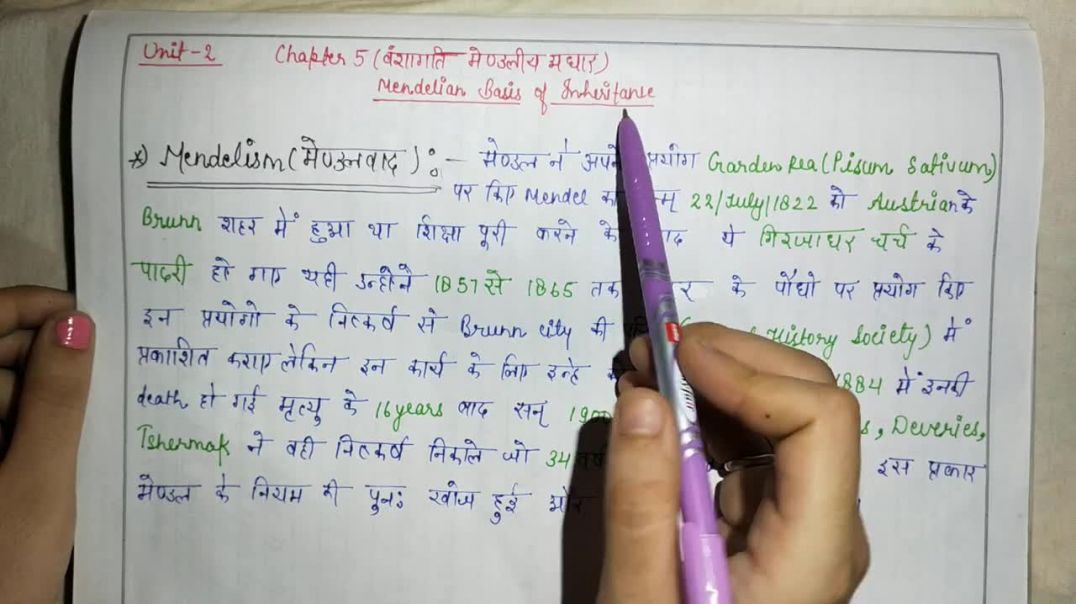 Unit-2 Chapter 5 (वंशागति मेण्डलीय मधार)
Mendelian Basis of Inheritanse
*) Mendelism (मेण्डलवाद) :- मेण्डल ने अपने प्रयोग Garden Pea (Pisum Sativum)
पर किए Mendel का 22/July/1822 को Austrian के
Brunn शहर में हुआ था शिक्षा पूरी करने के ये गिरजाघर चर्च के
पादरी हो गए यही उन्होंने 1857 से 1865 तक के पौधो पर प्रयोग किए
इन प्रयोगो के निष्कर्ष से Brunn city की History Society) में
प्रकाशित कराए लेकिन इन कार्य के लिए इन्हे 1884 में इनकी
death हो गई मृत्यु के 16 years बाद सन् Deveries,
Tshermak ने वही निष्कर्ष निकाले जो 34 वर्ष इस प्रकार
मेण्डल के नियम की पुनः खोज हुई और